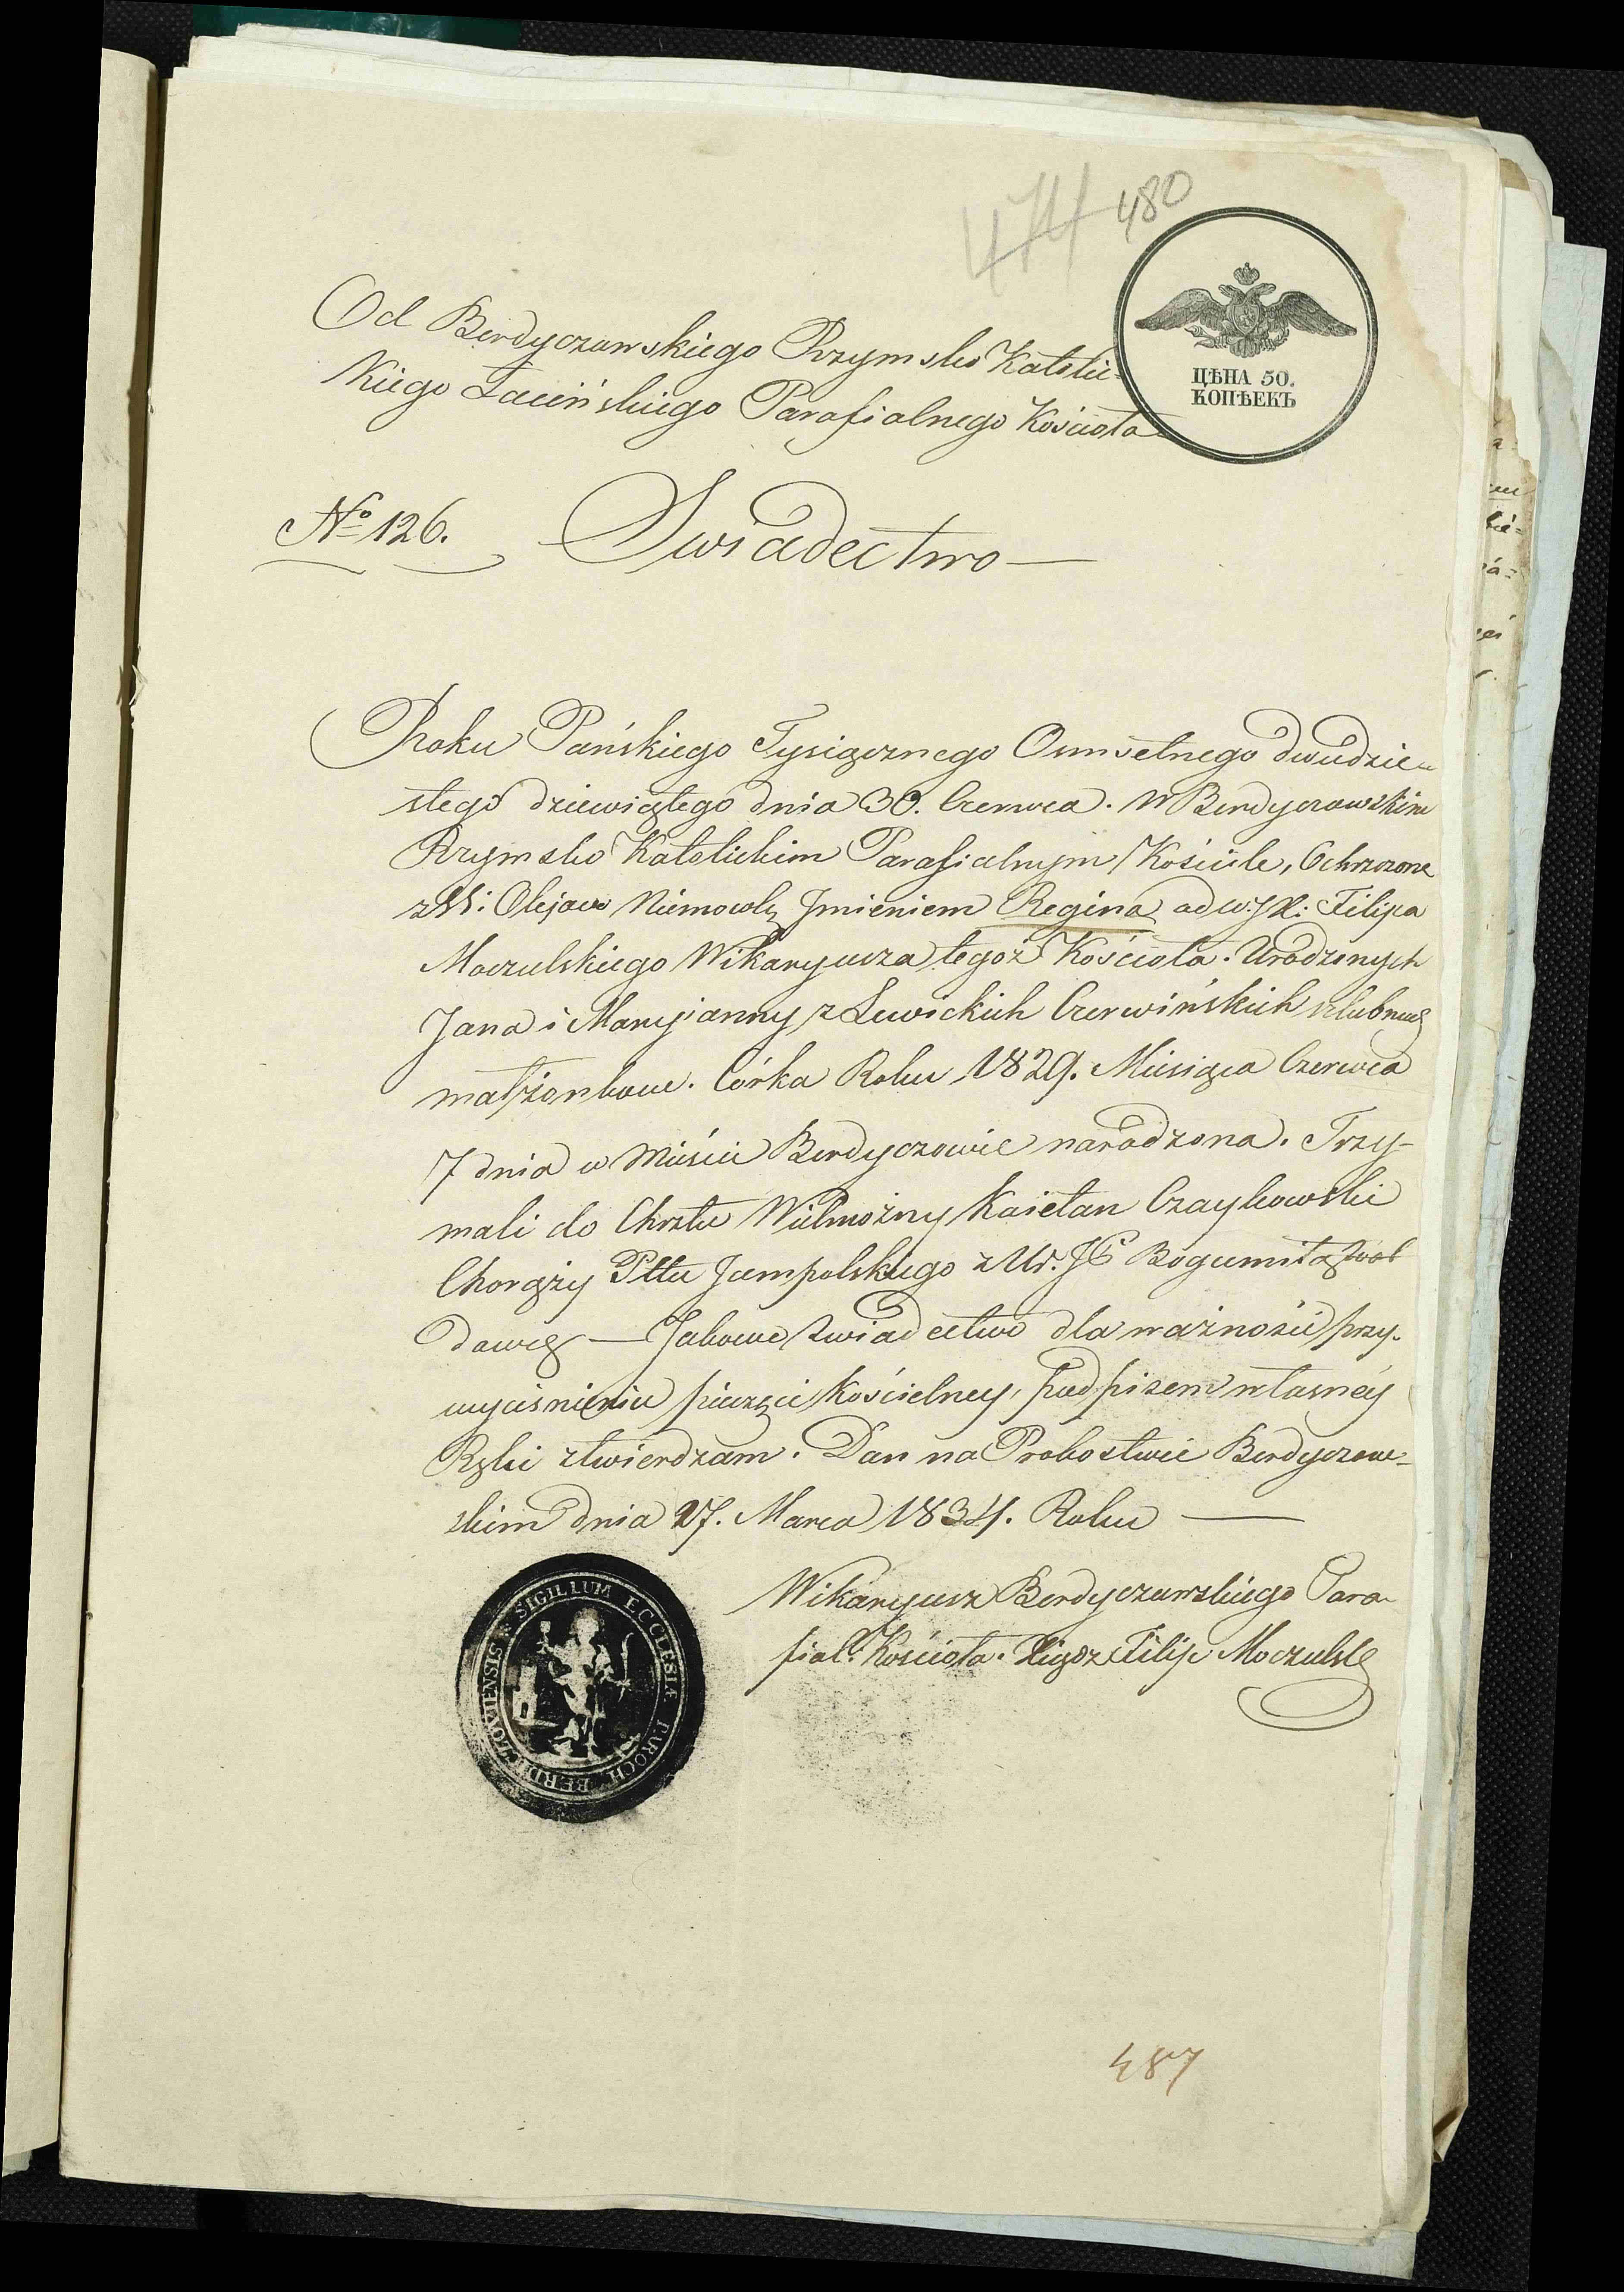 474 480
ЦѢНА 50.
КОПѢЕКЪ
Od Berdyczewskiego Rzymsko Katolic-
kiego Łacińskiego Parafialnego Kościoła
No 126. Swiadectwo
Roku Pańskiego Tysiącznego Osmsetnego dwudzie-
stego dziewiątego dnia 30. Czerwca. W Berdyczowskim
Rzymsko Katolickim Parafialnym Kościele, Ochrzczone
z SS: Olejow Niemowlę Imieniem Regina od w: JX: Filipa
Moczulskiego Wikaryusza tegoż Kościoła. Urodzonych
Jana i Maryjanny z Lewickich Czerwińskich szlubnych
małżonkow. Córka Roku 1829. Miesiąca Czerwca
7 dnia w Mieście Berdyczowie narodzona. Trzy-
mali do Chrztu Wielmożny Kaietan Czaykowski
Chorąży Pttu Jampolskiego z W. JP Bogumiłą
dową — Jakowe swiadectwo dla ważności przy
wyciśnieniu pieczęci Kościelney, podpisem własnéy
Ręki ztwierdzam. Dan na Probostwie Berdyczow-
skim dnia 27. Marca 1834. Roku —
Wikaryusz Berdyczewskiego Para-
fial: Kościoła. Xiądz Filip Moczulski
SIGILLUM ECCLESIÆ PAROCH: BERDYCZOVIENSIS
487